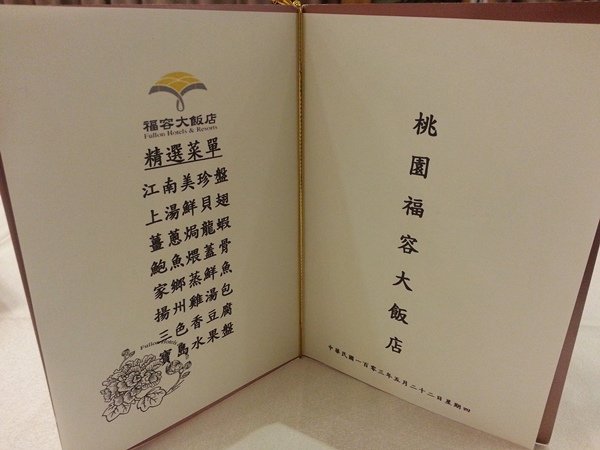 福容大飯店
Fullon Hotels & Resorts
精選菜單
江南美珍盤
上湯鮮貝翅
薑蔥焗龍蝦
鮑魚煨蓋骨
家鄉蒸鮮魚
揚州雞湯包
三色香豆腐
寶島水果盤
Fullon Hotels
桃園福容大飯店
中華民國一百零三年五月二十二日星期四